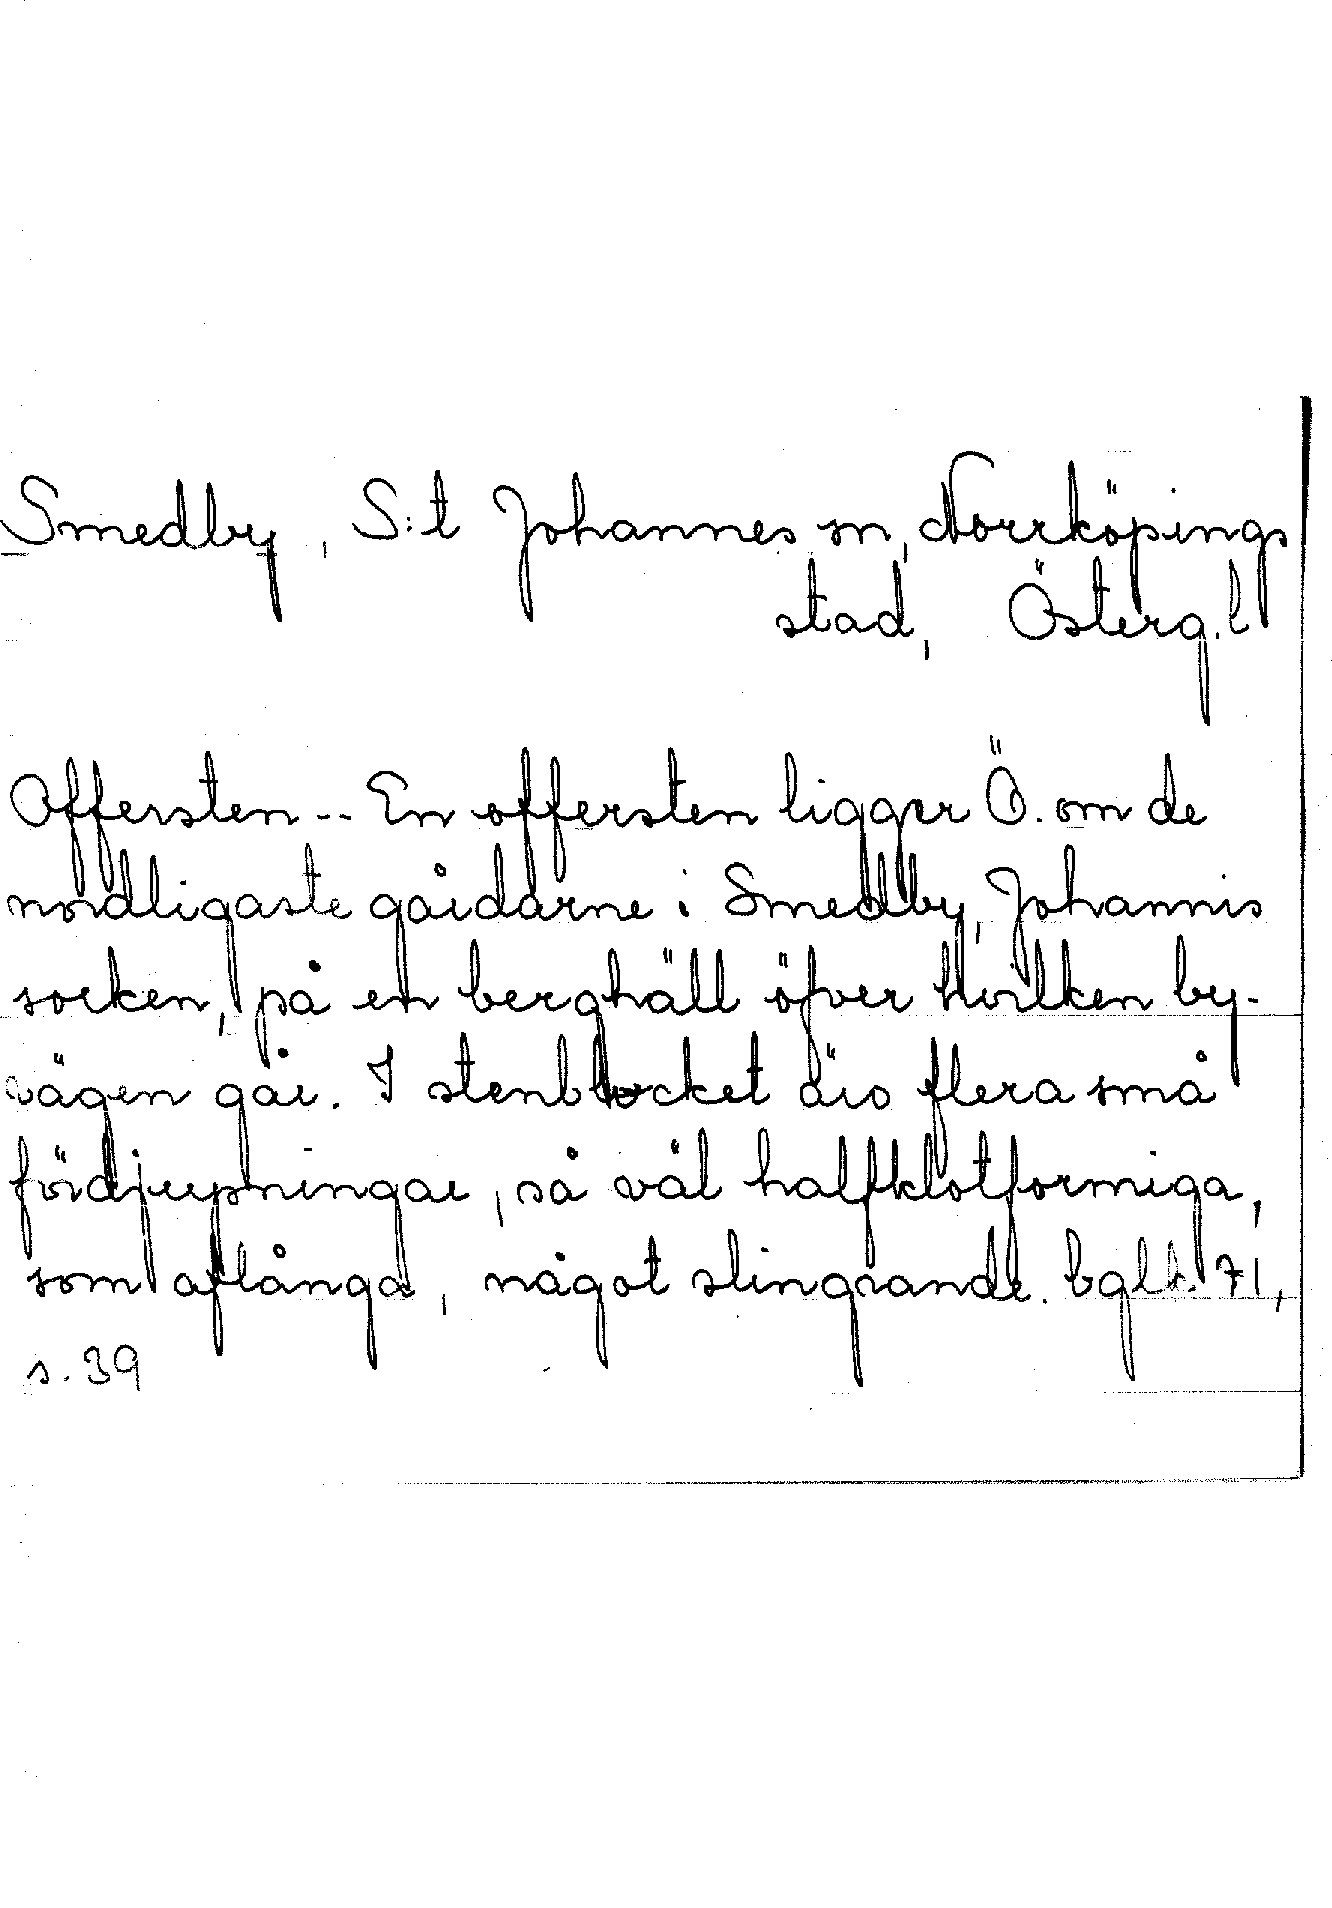 Smedby, S:t Johannes sn, Norrköpings
stad, Österg.l
Offersten -- En offersten ligger Ö. om de
nordligaste gårdarne i Smedby, Johannis
socken, på en berghäll öfver hvilken by-
vägen går. I stenblocket äro flera små
fördjupningar, så väl halfklotformiga,
som aflånga, något slingrande. bglk. 71,
s. 39